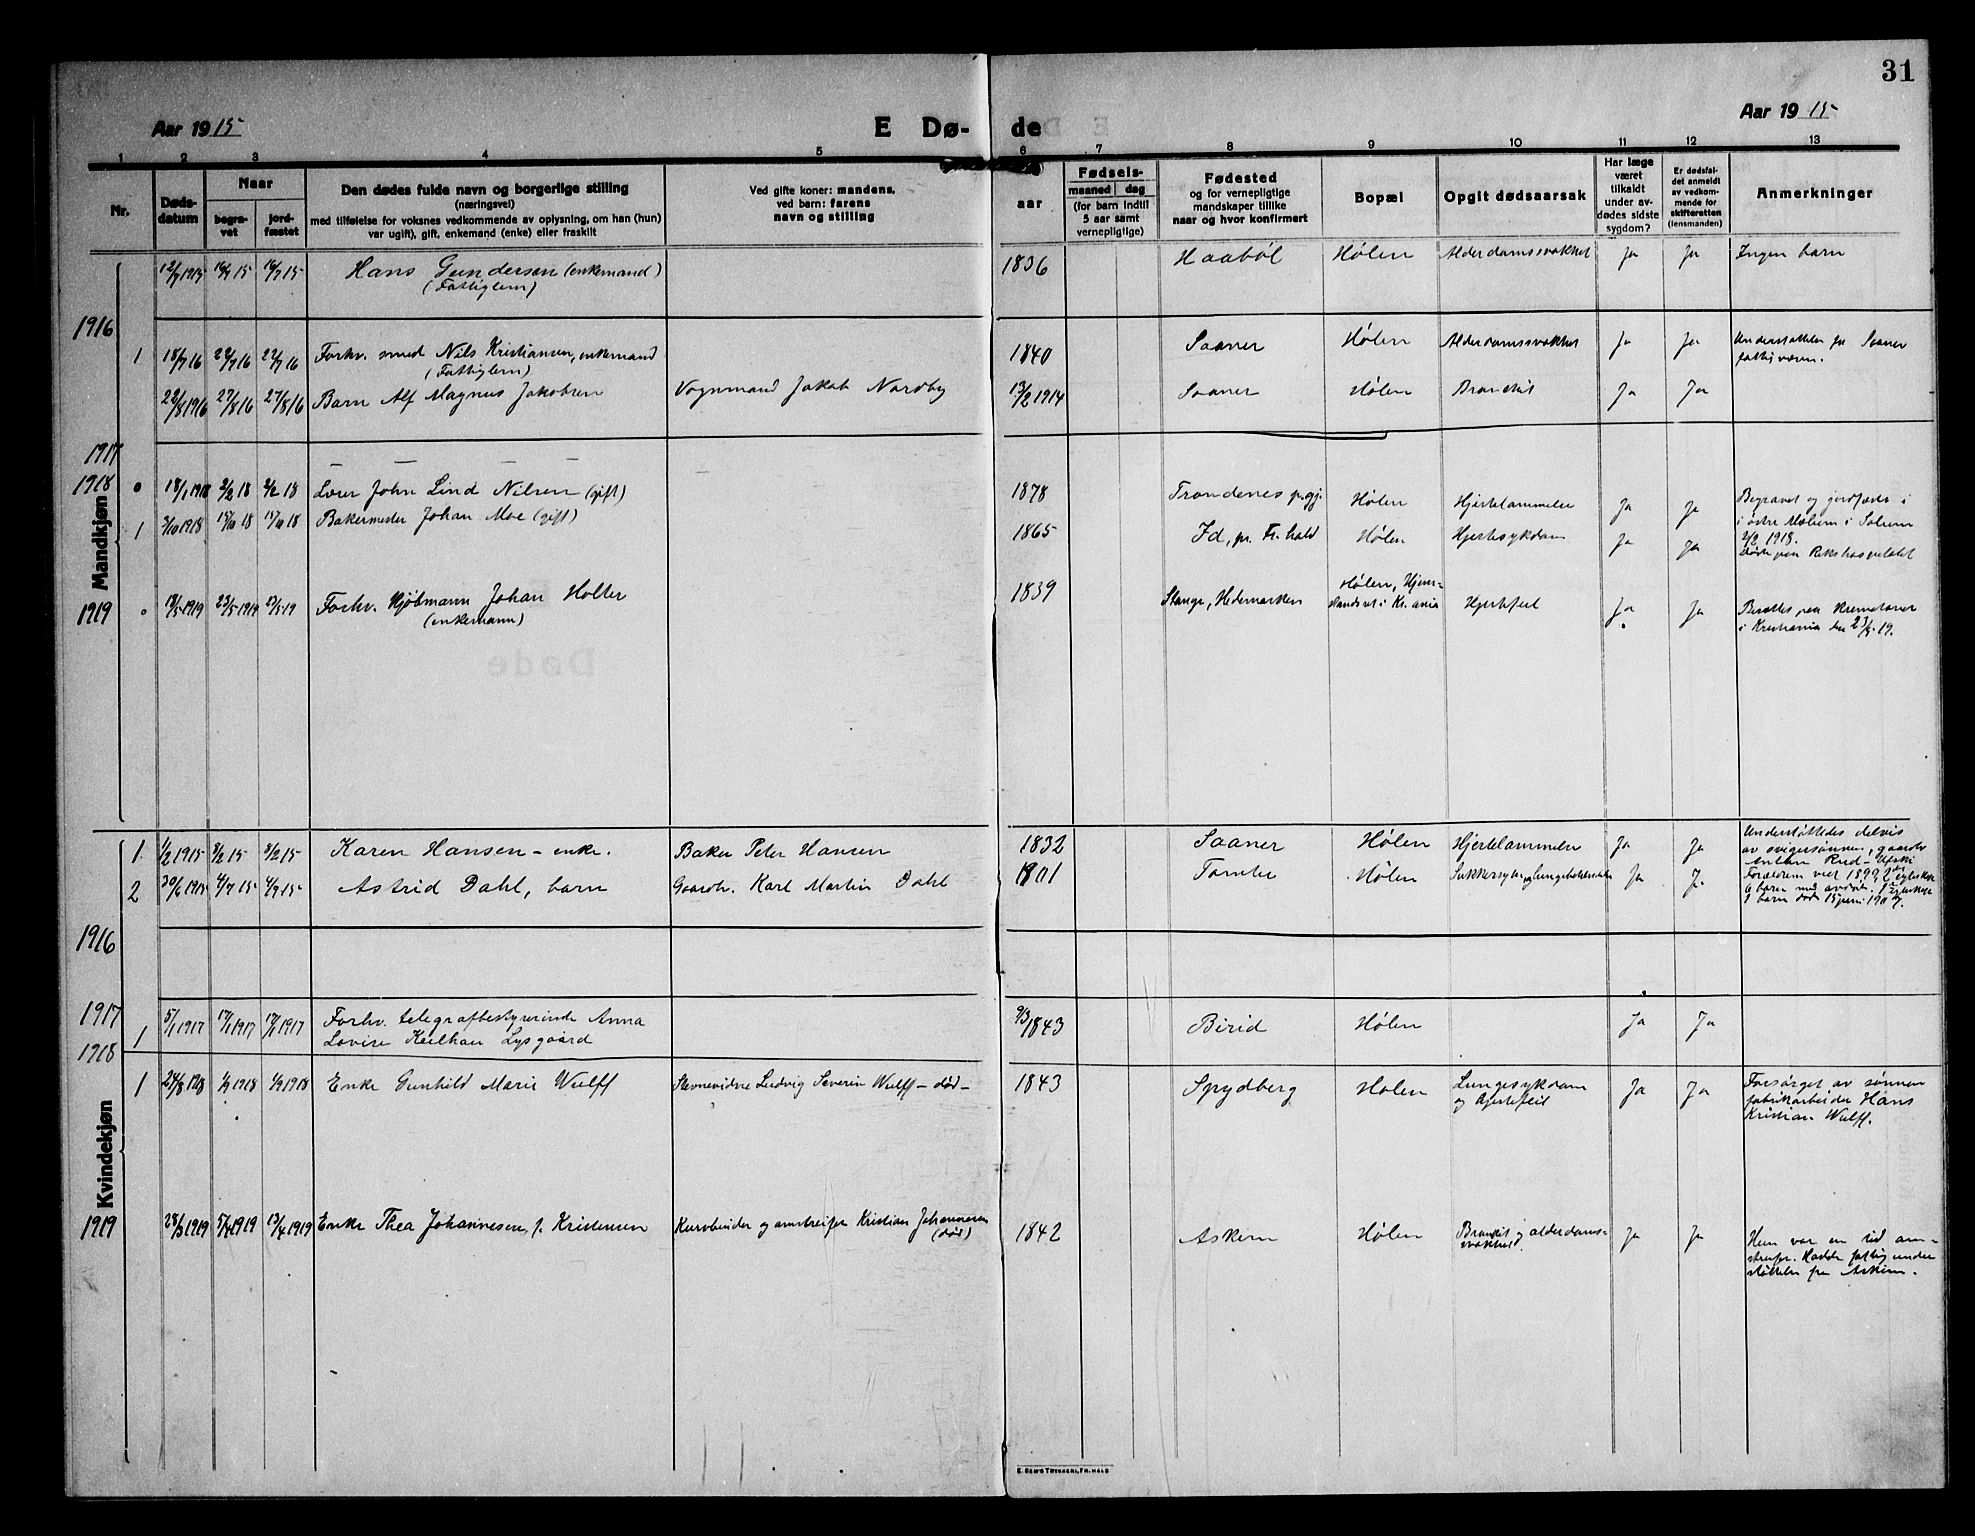 31
Aar 1915
E Dø- de
Aar 1915
1 2 3 4 5 6 7 8 9 10 11 12 13
Nr.
Døds-
datum
Naar
begra-
vet
jord-
fæstet
Den dødes fulde navn og borgerlige stilling
(næringsvei)
med tilføielse for voksnes vedkommende av oplysning, om han (hun)
var ugift), gift, enkemand (enke) eller fraskilt
Ved gifte koner: mandens,
ved barn: farens
navn og stilling
Fødsels-
aar
maaned dag
(for barn indtil
5 aar samt
vernepligtige)
Fødested
og for vernepligtige
mandskaper tillike
naar og hvor konfirmert
Bopæl
Opgit dødsaarsak
Har læge
været
tilkaldt
under av-
dødes sidste
sygdom?
Er dødsfal-
det anmeldt
av vedkom-
mende for
skifteretten
(lensmanden)
Anmerkninger
Mandkjøn
12/7 1915 16/7 15 16/7 15 Hans Gundersen (enkemand) 1836 Haabøl Hølen Alderdomssvakhet Ja Ja Ingen barn
(Fattiglem)
1916
1 18/7 16 22/7 16 22/7 16 Forhv. smed Nils Kristiansen, enkemand 1840 Saaner Hølen Alderdomssvakhet Ja Ja Understøttelse fra Saaner
(Fattiglem) fattigvæsen.
22/8 1916 27/8 16 27/8 16 Barn Alf Magnus Jakobsen Vognmand Jakob Nordby 13/2 1914 Saaner Hølen Bronchit Ja Ja
1917 — — — —
1918 18/1 1918 2/2 18 2/2 18 Lærer John Lind Nilsen (gift) 1878 Trondenes p.gj. Hølen Hjertelammelse Ja Ja Begravet og jordfæstet i
i østre Molum i Solum
2/2 1918.
1 3/10 1918 15/10 18 15/10 18 Bakermester Johan Moe (gift) 1865 Id, pr. Fr.hald Hølen Hjertesykdom Ja Ja Døde paa Rikshospitalet
1919 18/5 1919 23/5 1919 23/5 19 Forhv. Kjøbmann Johan Holter 1839 Stange, Hedemarken Hølen, Hjem- Hjertefeil Ja Ja Bisættes paa krematoriet
(enkemann) i Kristiania den 23/5 19.
Kvindekjøn
1. 1/2 1915 8/2 15 8/2 15 Karen Hansen – enke. Baker Peter Hansen 1832 Saaner Hølen Hjertelammelse Ja Ja Understøttedes delvis
av svigersønnen, gaardbr
Anton Rud –
2 30/6 1915 4/7 15 4/7 15 Astrid Dahl, barn Gaardbr. Karl Martin Dahl 1901 Tomter Hølen Ja J. Forældrene viet 1899
6 barn med avdøde.
15 juni 1907.
1916
1917
1 5/1 1917 17/1 1917 17/1 1917 Forhv. telegrafbestyrerinde Anna 9/3 1843 Birid Hølen Ja Ja
Lovise Keilhau Lysgaard
1918
1 24/8 1918 1/9 1918 1/9 1918 Enke Gunhild Marie Wulff Stevnevidne Ludvig Severin Wulff – død – 1843 Spydberg Hølen Lungesykdom Ja Ja Forsørget av sønnen
og hjertefeil fabrikarbeider Hans
Kristian Wulff.
1919 28/3 1919 5/4 1919 13/4 1919 Enke Thea Johannesen, f. Kristensen Kurvbinder og omstreifer Kristian Johannesen 1842 Askim Hølen Bronkit og alderdoms- Ja Ja Hun var en tid om-
(død) svakhet. streifer. Hadde fattigunder
støttelse fra Askim.
E. Sem's Trykkeri, Fr.hald